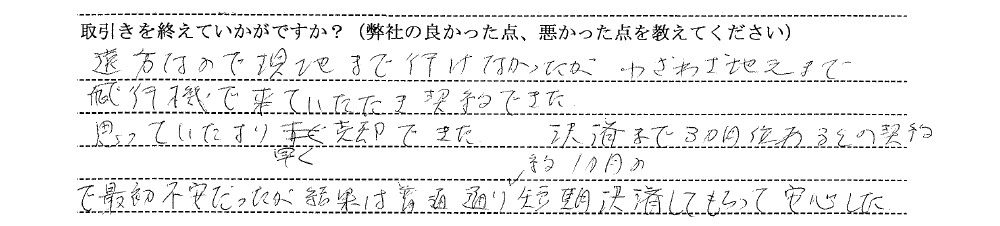 取引きを終えていかがですか？（弊社の良かった点、悪かった点を教えてください）
遠方なので現地まで行けなかったが わざわざ地元まで
飛行機で来ていただき契約できた
思っていたより早く売却できた 決済まで3カ月位あるとの契約
で最初不安だったが結果は普通通り約1カ月の短期決済してもらって安心した